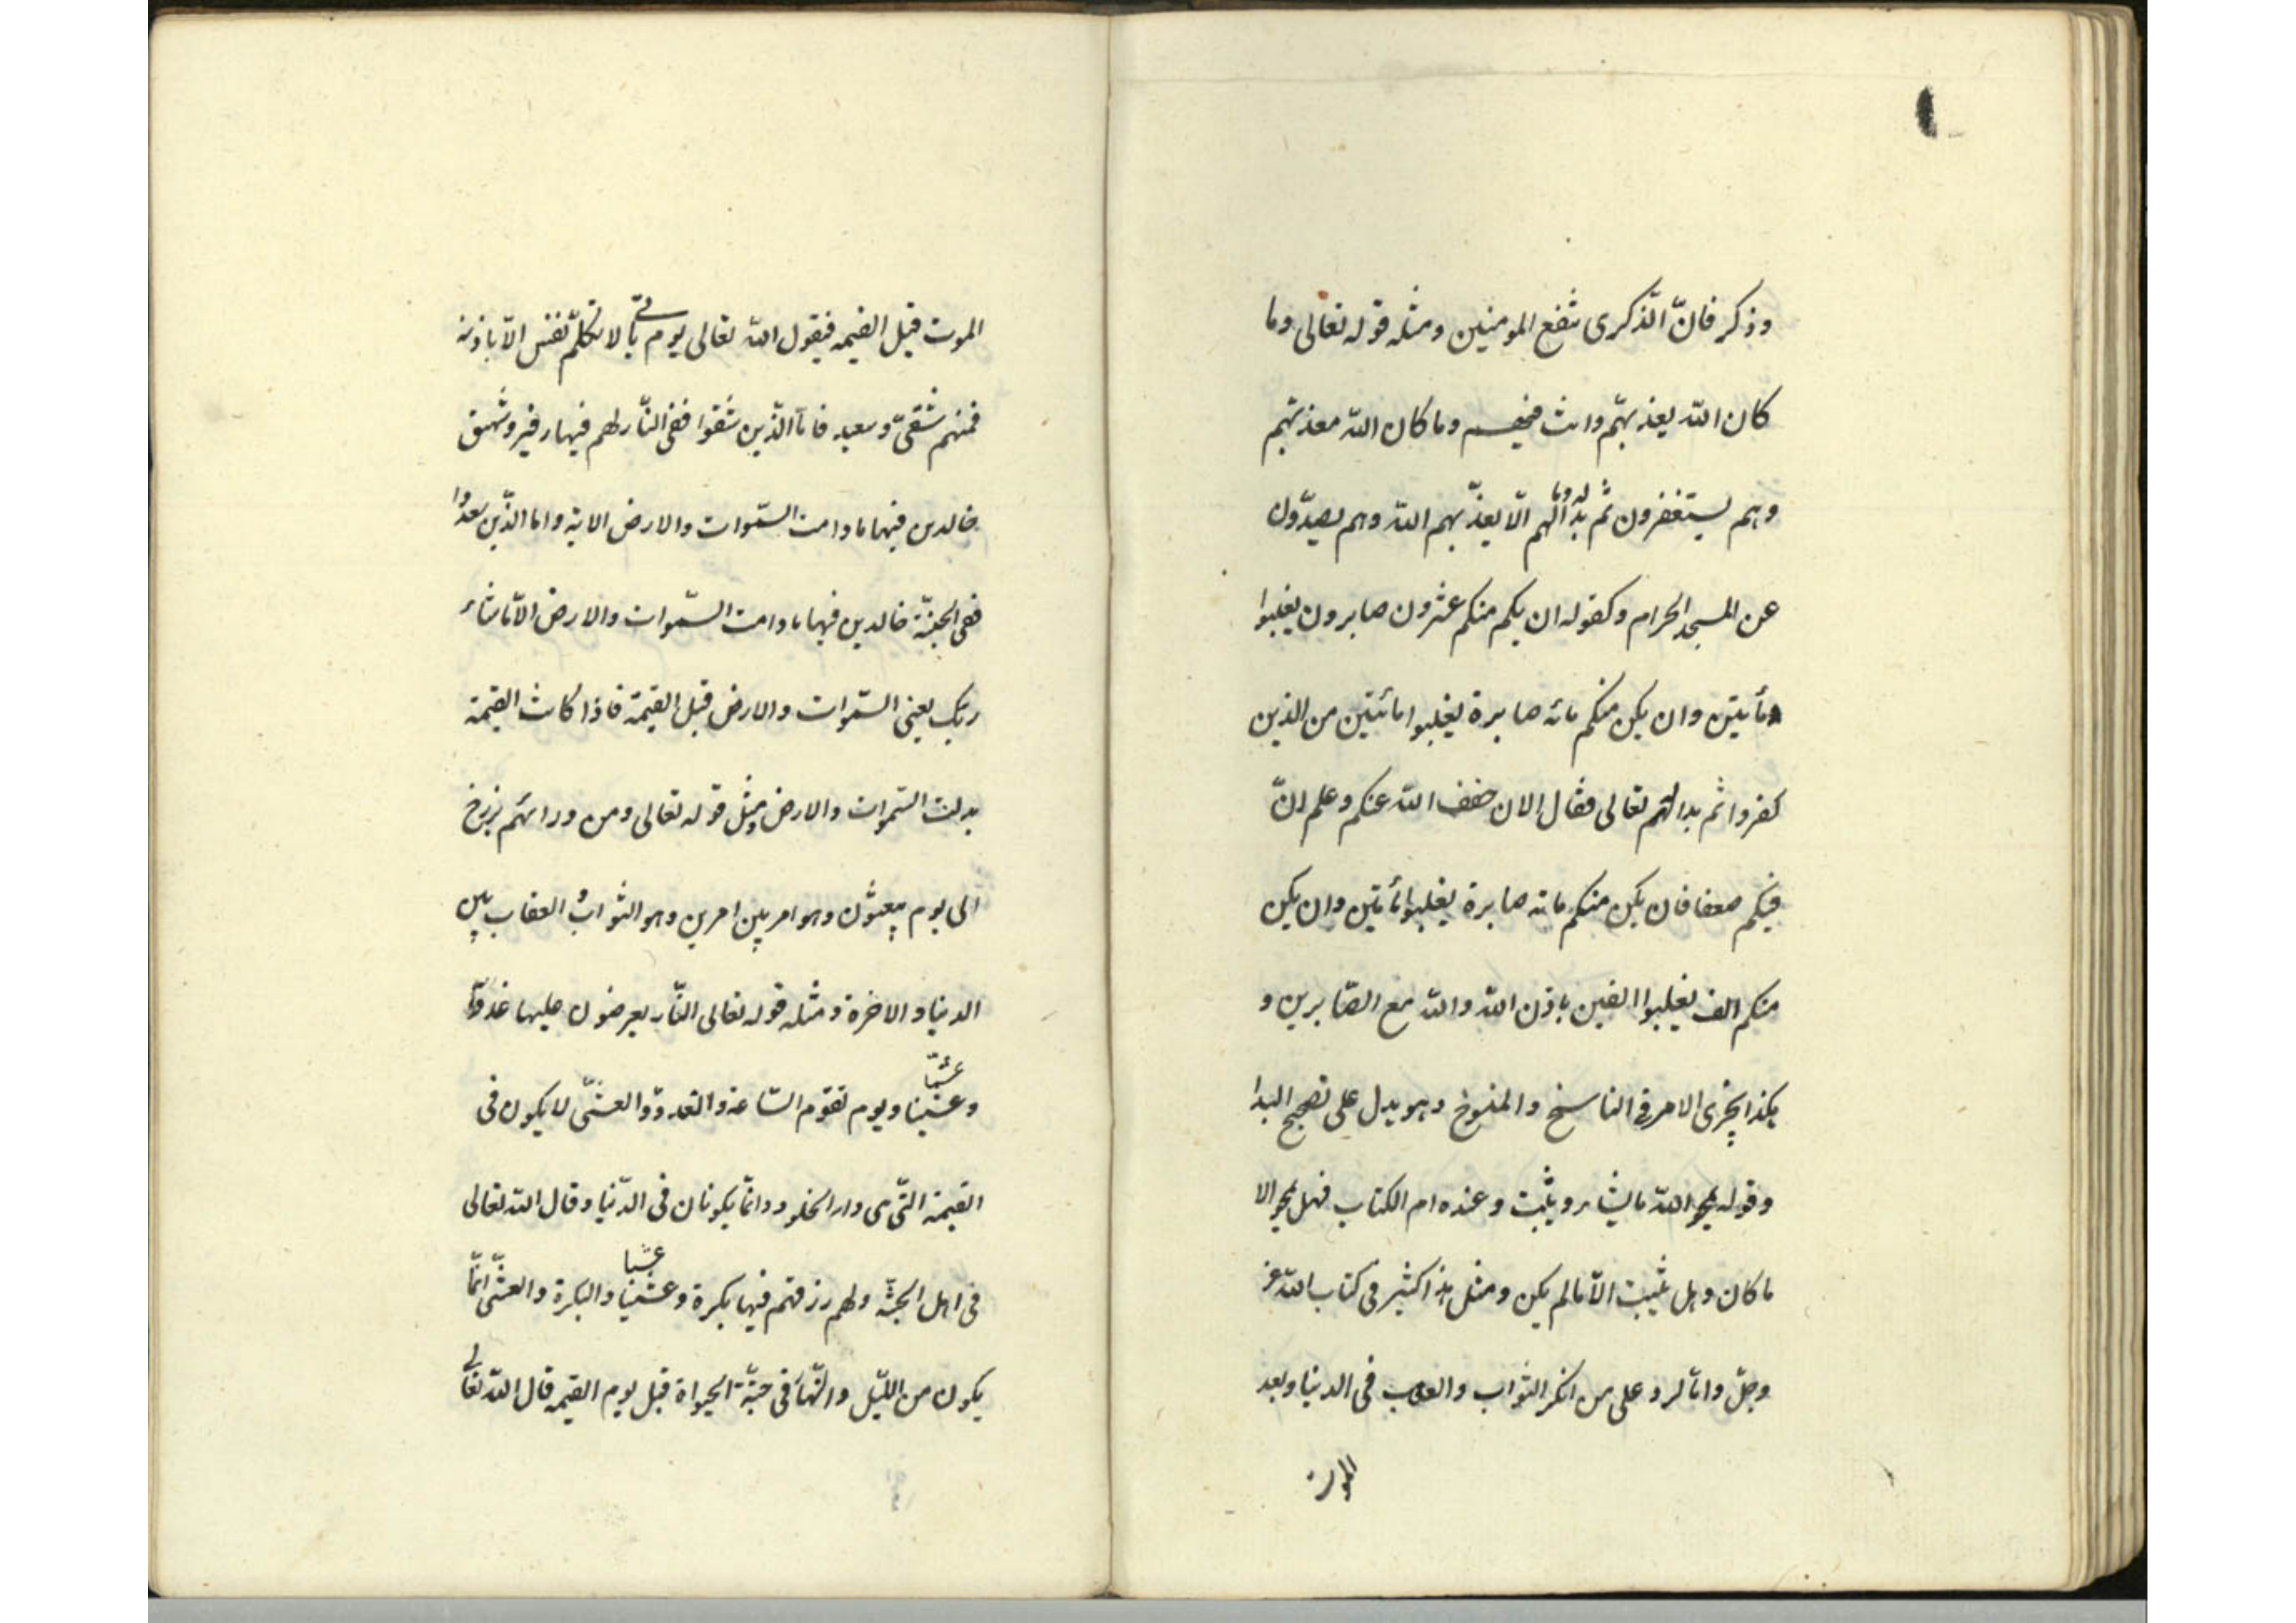 وذكر فانّ الذّكرى تنفع المومنين ومثله قوله تعالى وما
كان الله يعذّبهم وانت فيهم وما كان الله معذّبهم
وهم يستغفرون ثم بدا له وما لهم الّا يعذّبهم الله وهم يصدّون
عن المسجد الحرام وكقوله ان يكم منكم عشرون صابرون يغلبوا
مأتين وان يكن منكم مائه صابرة يغلبوا مائتين من الذين
كفروا ثم بدا لهم تعالى فقال الان خفف الله عنكم وعلم انّ
فيكم ضعفا فان يكن منكم مائه صابرة يغلبوا مأتين وان يكن
منكم الف يغلبوا الفين باذن الله والله مع الصّابرين و
هكذا يجرى الامر فى الناسخ والمنسوخ وهو يدل على تصحيح البدا
وقوله يمحوا الله ما يشاء ويثبت وعنده ام الكتاب فهل يمحو الا
ما كان وهل يثبت الّا ما لم يكن ومثل هذا كثير فى كتاب الله عز
وجلّ وامّا لرد على من انكر الثواب والعقاب فى الدنيا وبعد
الموت
الموت قبل القيمه فيقول الله تعالى يوم يأتى لا تكلّم نفس الّا باذنه
فمنهم شقىّ وسعيد فامّا الّذين شقوا ففى النّار لهم فيها زفير وشهيق
خالدين فيها ما دامت السّموات والارض الاية واما الذّين سعدوا
ففى الجنّة خالدين فيها ما دامت السّموات والارض الّا ما شاء
ربّك يعنى السّموات والارض قبل القيمة فاذا كانت القيمة
بدلت السّموات والارض ومثل قوله تعالى ومن ورائهم برزخ
الى يوم يبعثون وهو امر بين امرين وهو الثواب والعقاب بين
الدنيا والاخرة ومثله قوله تعالى النّار يعرضون عليها غدوّا
وعشيّا عشيّا ويوم تقوم السّاعة والغدوّ والعشىّ لا يكون فى
القيمة التّى هى دار الخلود وانمّا يكونان فى الدّنيا وقال الله تعالى
فى اهل الجنّة ولهم رزقهم فيها بكرة وعشيّا عشيا والبكرة والعشّى انّما
يكون من اللّيل والنّهار فى جنّة الحيواة قبل يوم القيمه قال الله تعالى